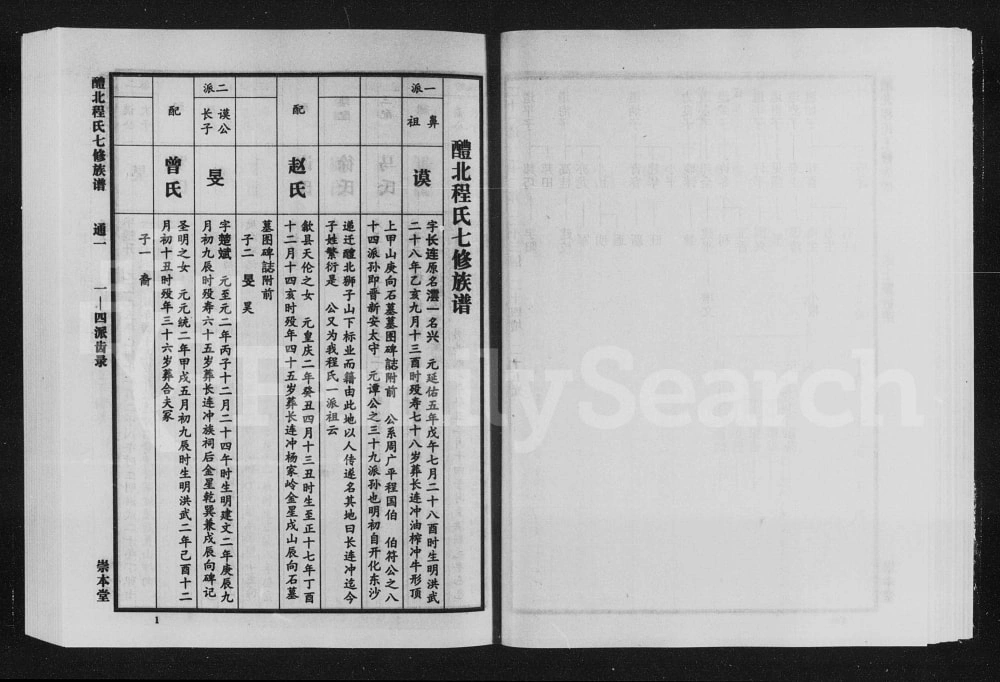 醴北程氏七修族谱
一派
鼻祖
谟
字长连原名澐一名兴　元延佑五年戊午七月二十八酉时生明洪武
二十八年乙亥九月十三酉时殁寿七十八岁葬长连冲油榨冲牛形顶
上甲山庚向石墓墓图碑誌附前　公系周广平程国伯　伯符公之八
十四派孙即晋新安太守　元谭公之三十九派孙也明初自开化东沙
递迁醴北狮子山下标业而籍由此地以人传遂名其地曰长连冲迄今
子姓繁衍是　公又为我程氏一派祖云
配
赵氏
歙县天伦之女　元皇庆二年癸丑四月十三丑时生至正十七年丁酉
十二月十四亥时殁年四十五岁葬长连冲杨家岭金星戌山辰向石墓
墓图碑誌附前
子二　旻　昊
二派
谟公长子
旻
字楚斌　元至元二年丙子十二月二十四午时生明建文二年庚辰九
月初九辰时殁寿六十五岁葬长连冲族祠后金星乾巽兼戌辰向碑记
配
曾氏
圣明之女　元元统二年甲戌五月初九辰时生明洪武二年己酉十二
月初十丑时殁年三十六岁葬合夫冢
子一　裔
醴北程氏七修族谱
通一
一—四派齿录
崇本堂
1
FamilySearch